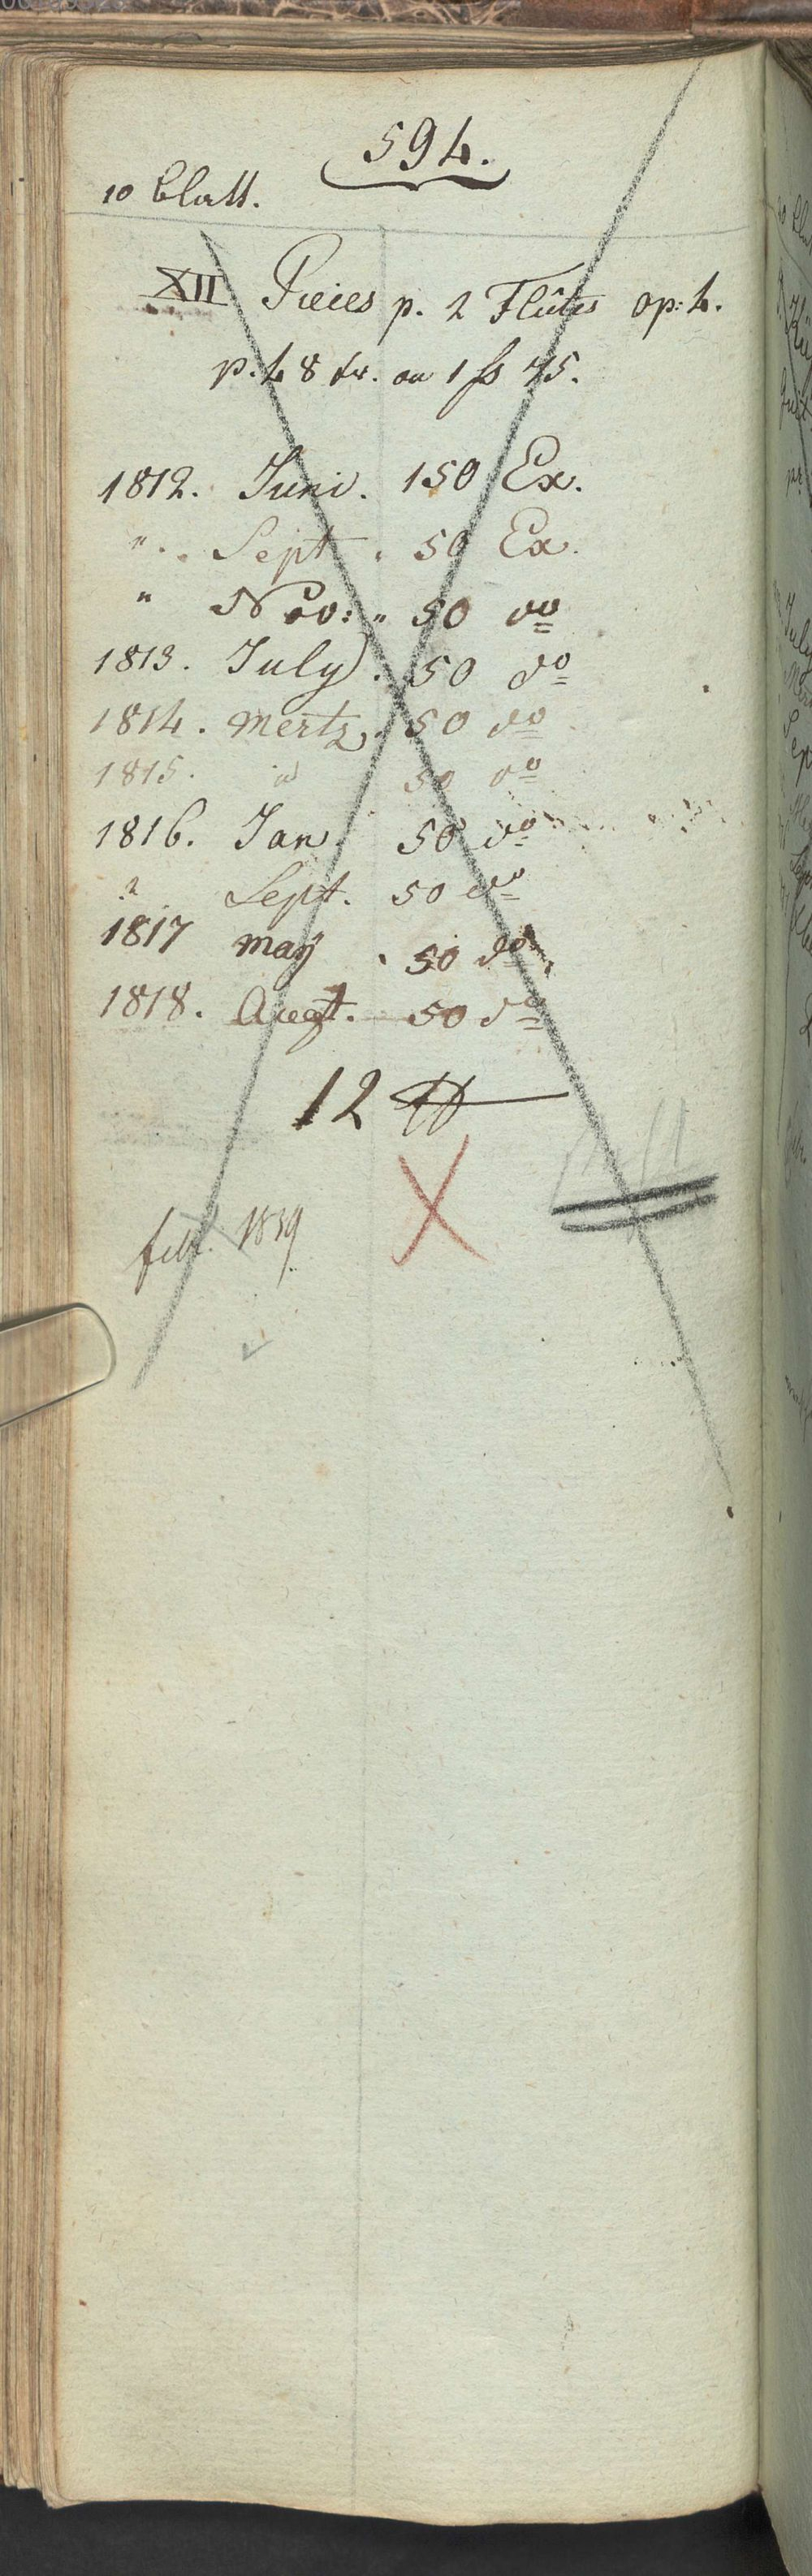 594.
10 Blatt.
XII Pieces p. 2 Flûtes op: 4.
p. 48 kr. ou 1 fs 75.
1812. Juni. 150 Ex.
" . Sept . 50 Ex.
" Nov: " 50 do
1813. July . 50 do
1814. Mertz . 50 do
1815. id 50 do
1816. Jan. 50 do
" Sept. 50 do
1817 May . 50 do
1818. Augt. 50 do
12 ℔
febr. 1839